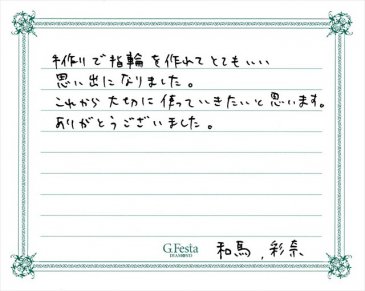 手作りで指輪を作れてとてもいい
思い出になりました。
これから大切に使っていきたいと思います。
ありがとうございました。
G.Festa
DIAMOND
和馬,彩奈